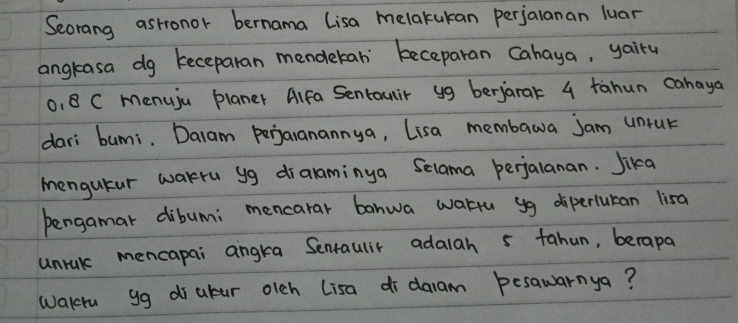 Seorang astronot bernama Lisa melakukan perjalanan luar
angkasa dg kecepatan mendekati kecepatan cahaya, yaitu
0,8 C menuju planet Alfa Sentaulit yg berjarak 4 tahun cahaya
dari bumi. Dalam perjalanannya, Lisa membawa jam untuk
mengukur waktu yg dialaminya selama perjalanan. Jika
pengamat dibumi mencatat bahwa waktu yg diperlukan lisa
untuk mencapai angka Sentaulit adalah 5 tahun, berapa
waktu yg di ukur oleh Lisa di dalam pesawatnya?